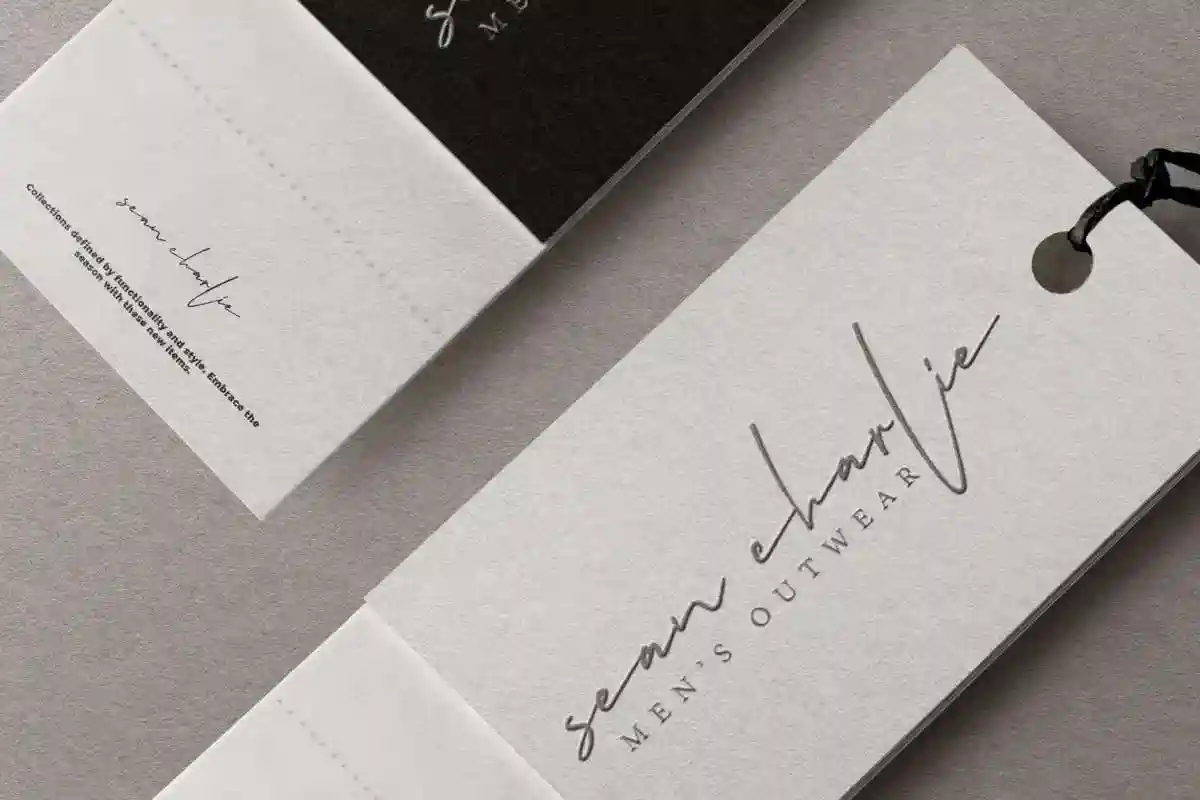 sean charlie
Collections defined by functionality and style. Embrace the
season with these new items.
sean charlie
MEN'S OUTWEAR